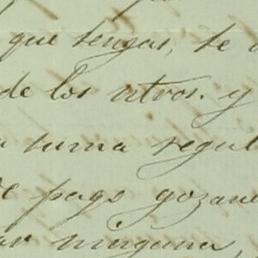 que tengas, te
de los otros. y
suma regul
pago gozane
por ninguna,